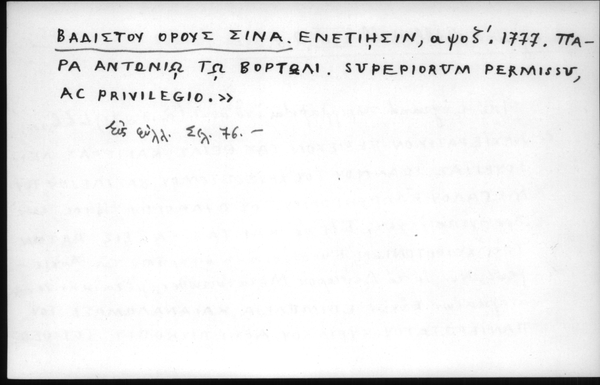 ΒΑΔΙΣΤΟΥ ΟΡΟΥΣ ΣΙΝΑ. ΕΝΕΤΙΗΣΙΝ, αψοζ΄. 1777. ΠΑ-
ΡΑ ΑΝΤΩΝΙῼ Τῼ ΒΟΡΤΩΛΙ. SUPERIORUM PERMISSU,
AC PRIVILEGIO.»
Εἰς φύλλ. Σελ. 76. —